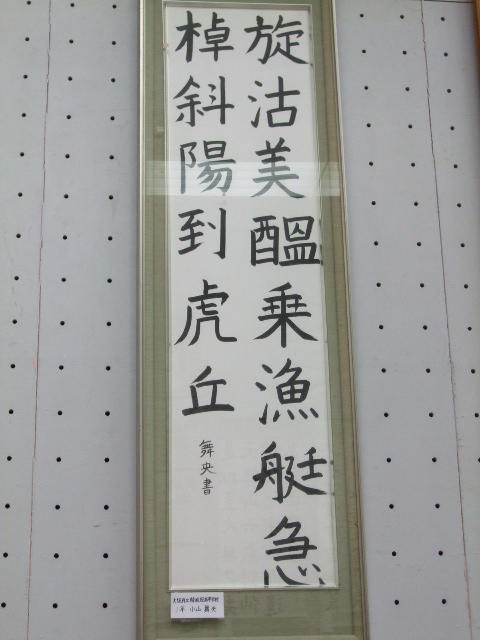 旋沽美醞乗漁艇急
棹斜陽到虎丘
舞央書
1年 小山 舞央